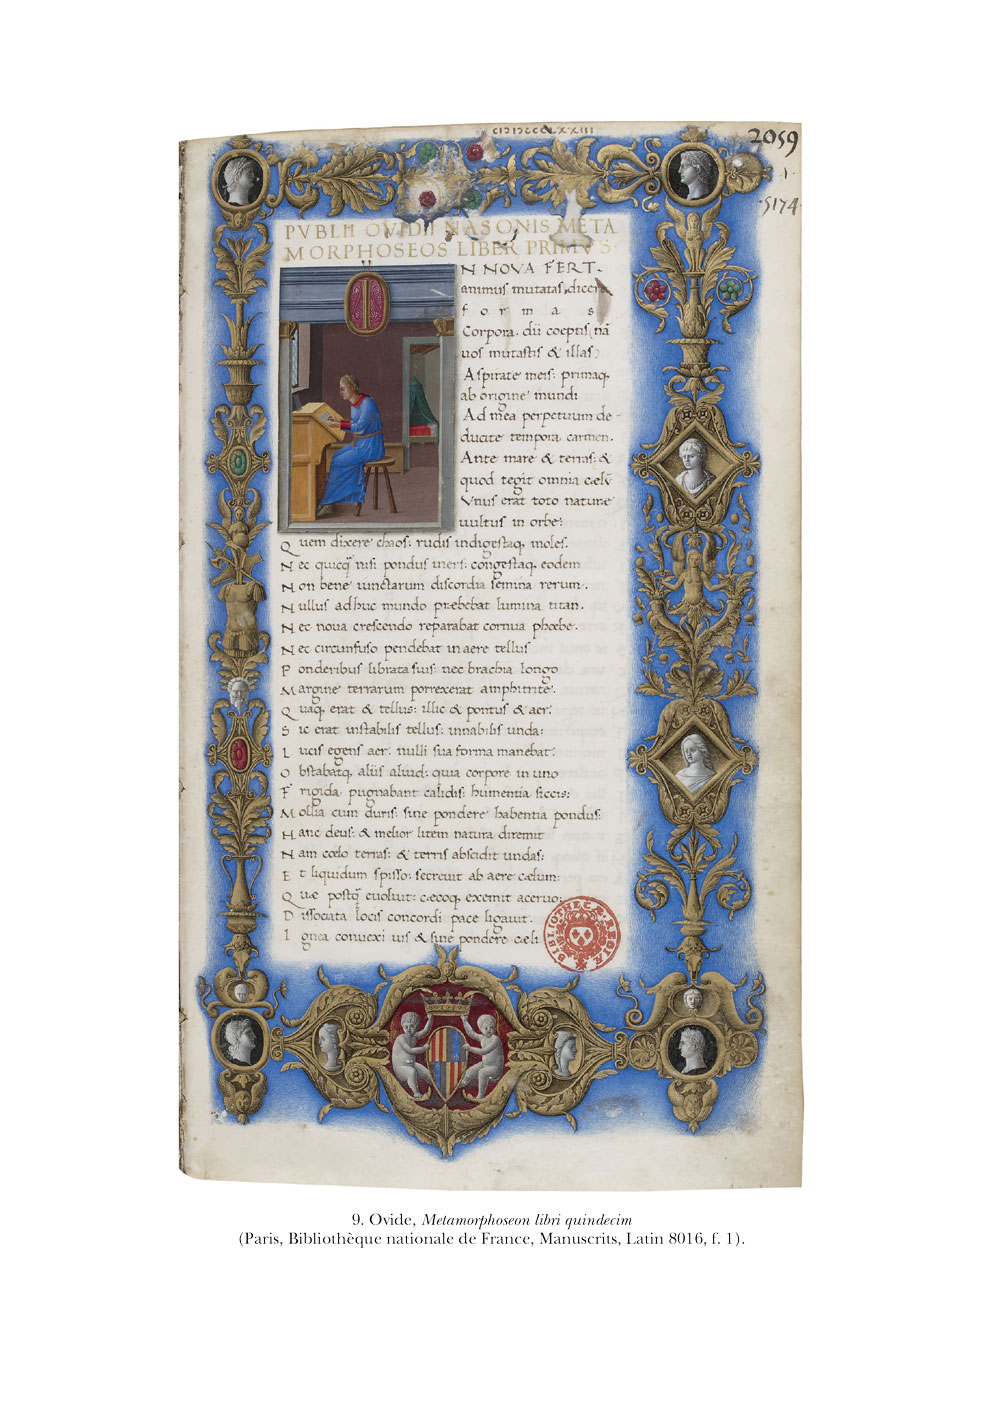 2059
5174
PVBLII OVIDII NASONIS META
MORPHOSEOS LIBER PRIMVS:
I
N NOVA FERT.
animus mutatas dicere
formas
Corpora. dii coeptis nā
uos mutastis & illas:
Aspirate meis: primaq.
ab origine mundi
Ad mea perpetuum de-
ducite tempora carmen.
Ante mare & terras: &
quod tegit omnia cælū
Vnus erat toto naturæ
uultus in orbe:
Quem dixere chaos: rudis indigestaq. moles.
Nec quicq̄ nisi pondus iners: congestaq. eodem
Non bene iunctarum discordia semina rerum.
Nullus adhuc mundo præbebat lumina titan.
Nec noua crescendo reparabat cornua phœbe.
Nec circunfuso pendebat in aere tellus
Ponderibus librata suis: nec brachia longo
Margine terrarum porrexerat amphitrite.
Quaq. erat & tellus: illic & pontus & aer.
Sic erat instabilis tellus: innabilis unda:
Lucis egens aer. nulli sua forma manebat.
Obstabatq. aliis aliud: quia corpore in uno
Frigida pugnabant calidis: humentia siccis:
Mollia cum duris: sine pondere habentia pondus:
Hanc deus: & melior litem natura diremit
Nam cœlo terras: & terris abscidit undas:
Et liquidum spisso: secreuit ab aere cælum:
Quæ postq̄ euoluit: cæcoq. exemit aceruo:
Dissociata locis concordi pace ligauit.
Ignea conuexi uis & sine pondere cæli
BIBLIOTHECÆ REGIÆ
9. Ovide, Metamorphoseon libri quindecim
(Paris, Bibliothèque nationale de France, Manuscrits, Latin 8016, f. 1).